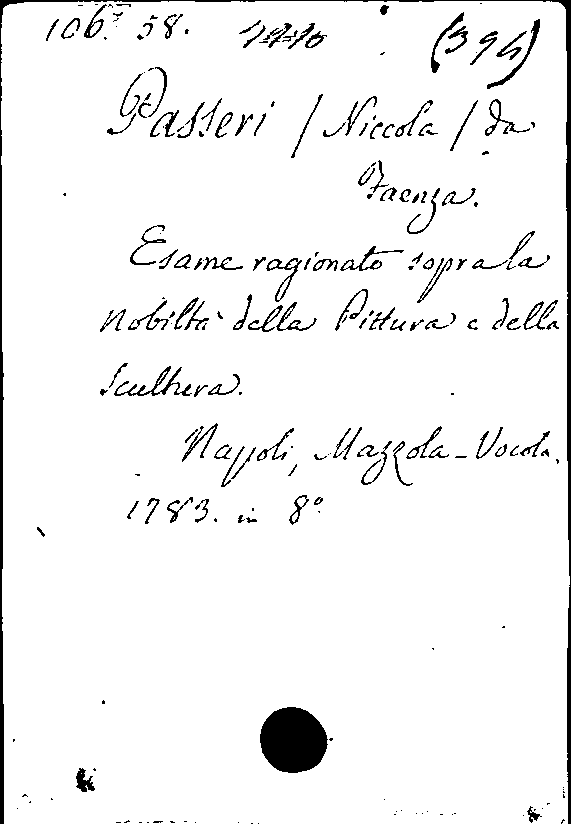 106. 58. (395)
Passeri / Niccola / da
Faenza.
Esame ragionato sopra la
Nobiltà della Pittura e della
Scultura.
Napoli, Mazzola-Vocola.
1783. in 8°